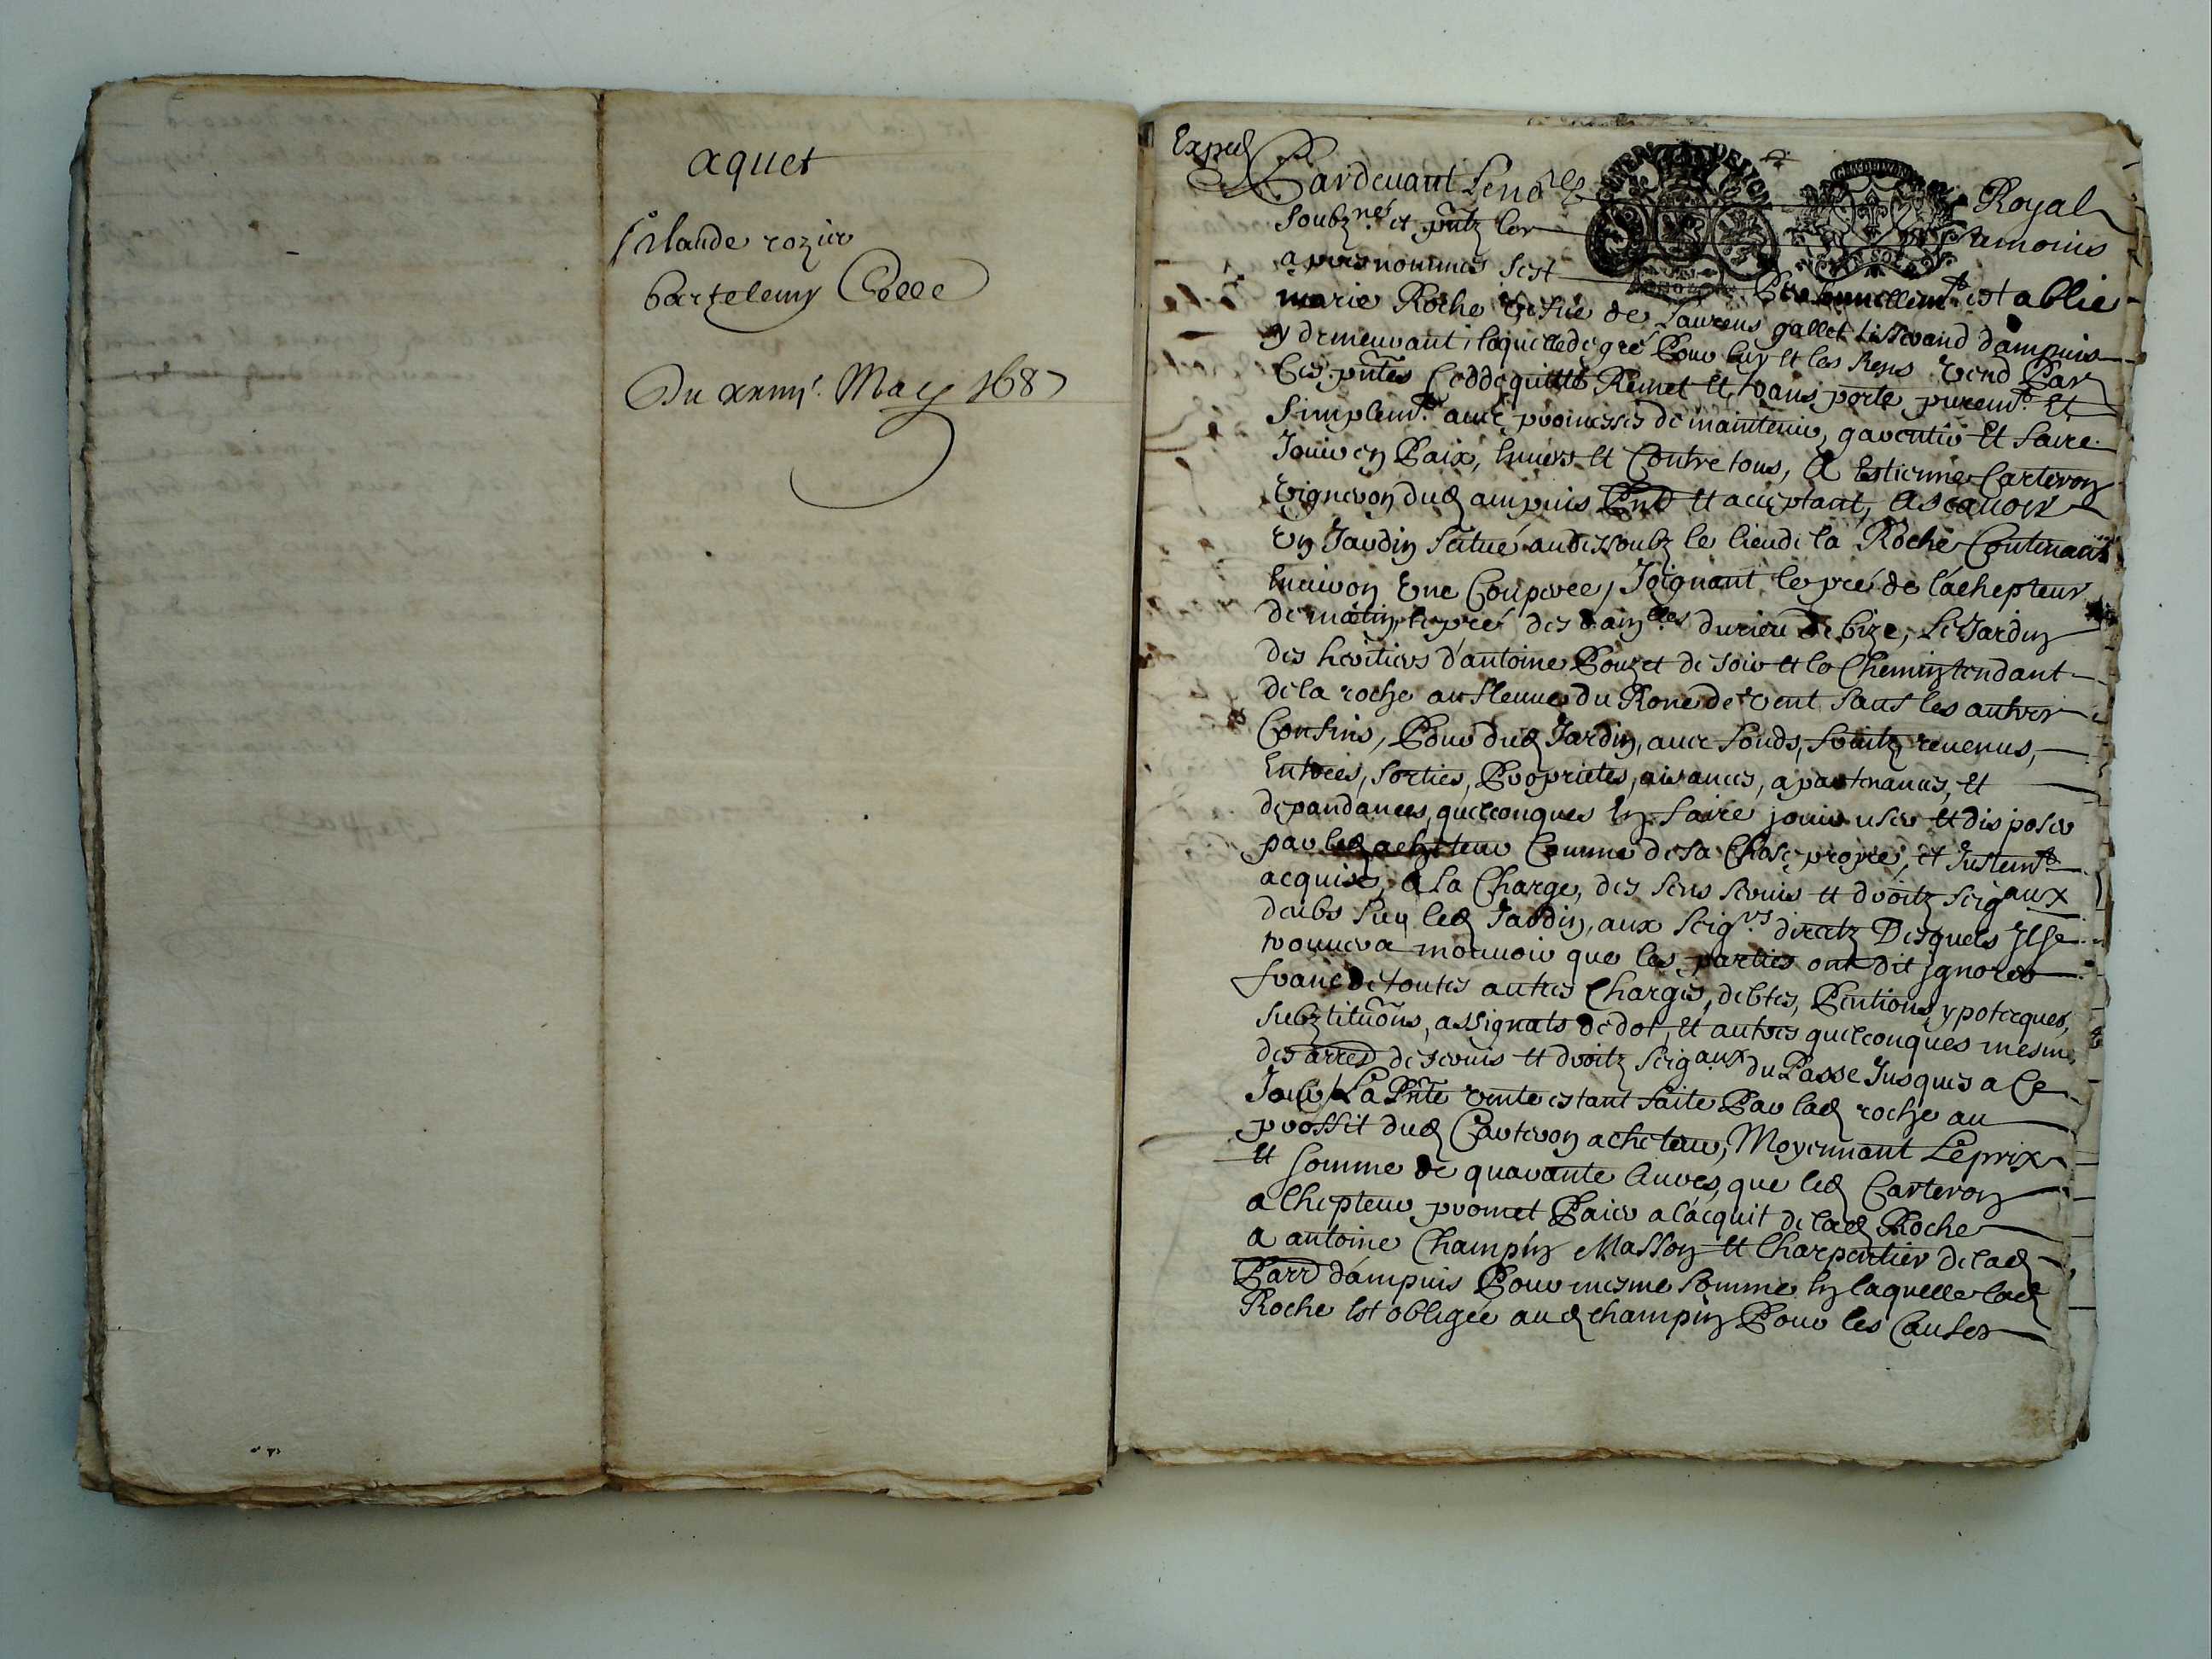 aquet
Sr Claude rozier
bartelemy Colle
Du xxiiiie. May 1687
Exped
Pardevant Le nore Royal
soubzné. et pntz les tesmoins
apres nommes sest Personnellemt. establie
marie Roche vefue de Laurens gallet tisserand dampuis
y demeurant, laquelle de gré Pour luy et les siens vend Par
Ces pntes Cedde quitte Remet et transporte purement. Et
simplemt. avec promesses de maintenir, garentir Et faire
Jouir en Paix, Envers et Contre tous, A Estienne Carteron
vigneron dud ampuis Pnt et acceptant, Ascavoir
un Jardin scitué audessoubz le lieu de la Roche Contenant
Environ une Couperee, Joignant le pré de lachepteur
de matin, le pré des damlles durieu de bize, Le Jardin
des heritiers d'antoine Pouzet de soir et le Chemin tendant
de la roche au fleuve du Rone de vent sauf les autres
Confins, Pour dud Jardin, avec fonds, fruitz revenus,
Entrées, sorties, Proprietes, aisances, apartenances, et
depandances, quelconques En faire jouir user et disposer
par led achepteur Comme de sa Chose propre, et Justemt.
acquise, A la Charge, des sens servis et droitz seigaux
deubs sur led Jardin, aux seigrs. directz Desquels Il se
trouvera mouvoir que les parties ont dit ignorer
franc de toutes autres Charges, debtes, Pentions, ypoteques,
substitutõns, assignats de dot, et autres quelconques mesme
des arres de servis et droitz seigaux du Passe Jusques a Ce
Jour, La Pnte vente estant faite Par lad roche au
proffit dud Carteron acheteur, Moyennant Le prix
et somme de quarante livres, que led Carteron
achepteur promet Paier a lacquit de lad Roche
a antoine Champin Masson et Charpentier de lad
Parr d'ampuis Pour mesme somme En laquelle lad
Roche Est obligée aud champin Pour les Causes